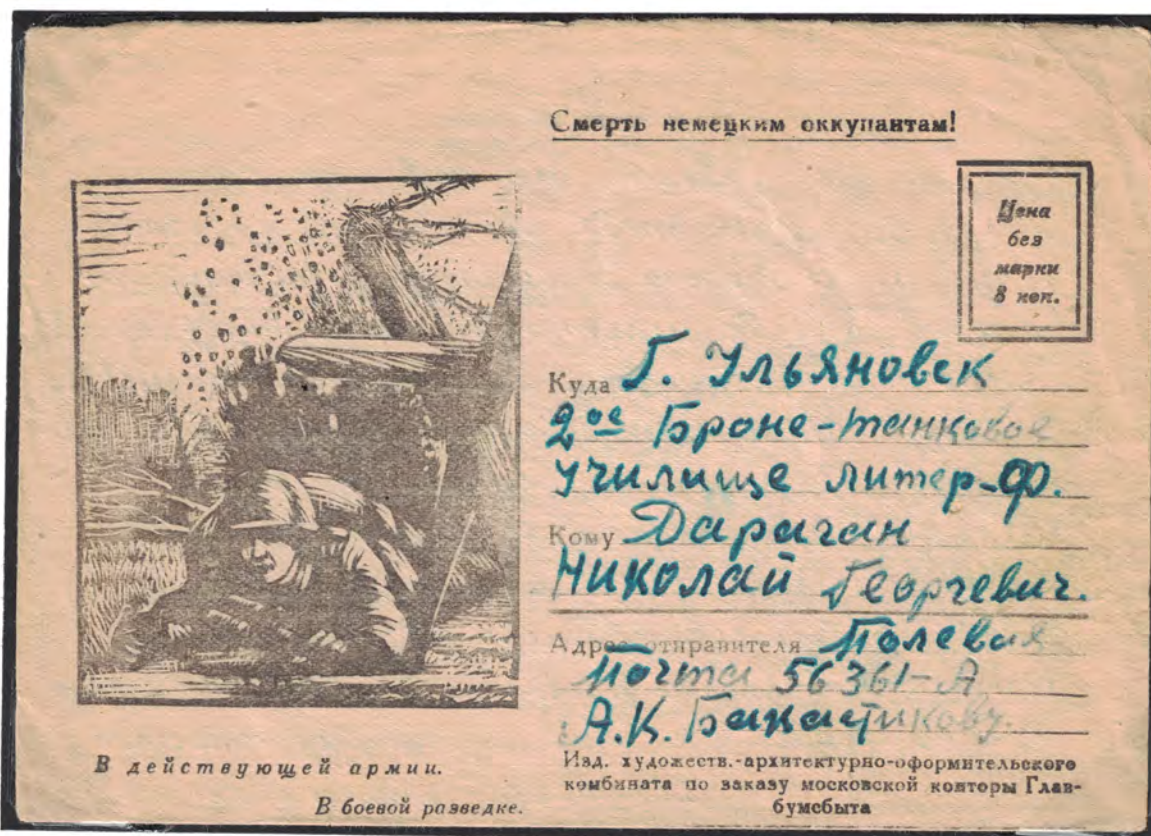 Смерть немецким оккупантам!
Цена
без
марки
8 коп.
Куда Г. Ульяновск
2ое Броне-танковое
училище литер-Ф.
Кому Дараган
Николай Георгевич.
Адрес отправителя Полевая
почта 56361-А
А.К.
В действующей армии.
В боевой разведке.
Изд. художеств.-архитектурно-оформительского
комбината по заказу московской конторы Глав-
бумсбыта